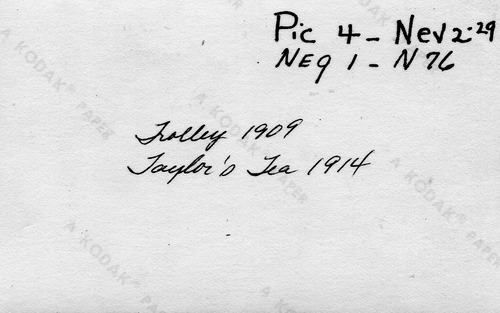 Pic 4 - Nev 2-29
NEg 1 - N 76
Trolley 1909
Taylor's Tea 1914
A KODAK® PAPER
A KODAK® PAPER
A KODAK® PAPER
A KODAK® PAPER
A KODAK® PA
A KODAK®